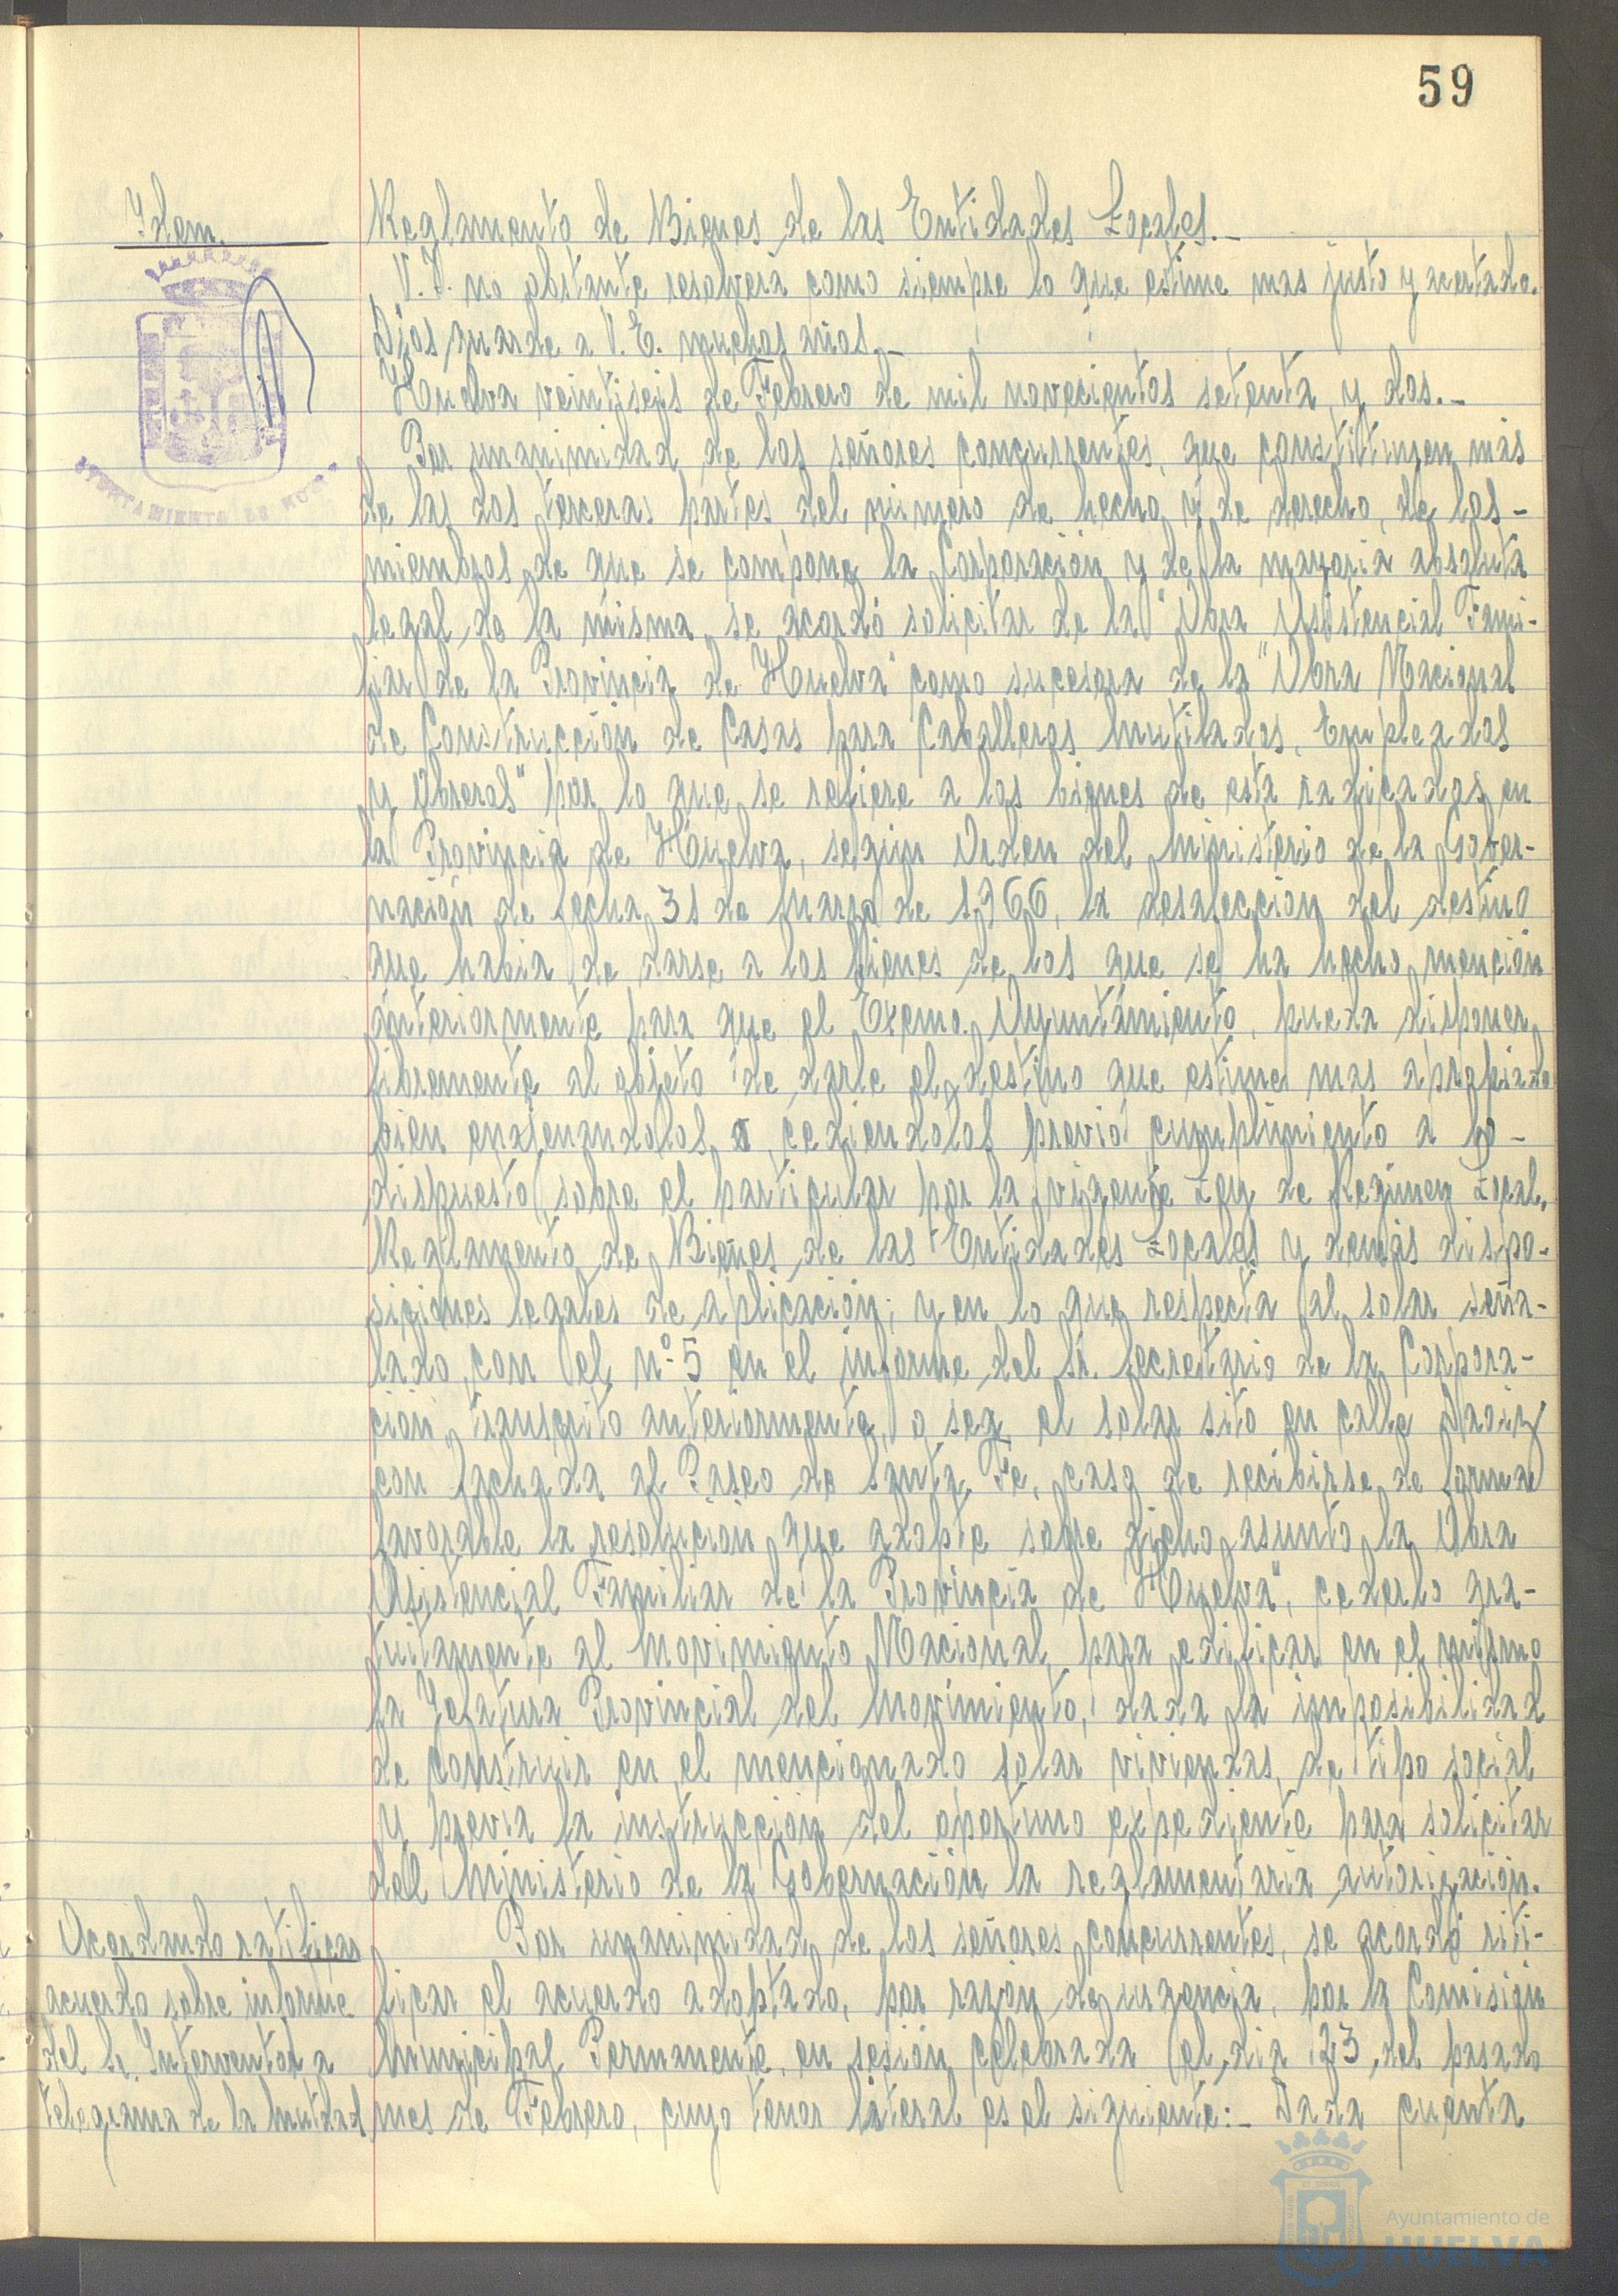 59
Idem.
Reglamento de Bienes de las Entidades Locales.-
V.I. no obstante resolverá como siempre lo que estime mas justo y acertado.
Dios guarde a V.E. muchos años.-
Huelva veintiseis de Febrero de mil novecientos setenta y dos.-
Por unanimidad de los señores concurrentes, que constituyen más
de las dos terceras partes del número de hecho y de derecho, de los-
miembros de que se compone la Corporación y de la mayoria absoluta
legal de la misma, se acordó solicitar de la "Obra Asistencial Fami-
liar de la Provincia de Huelva" como sucesora de la "Obra Nacional
de Construcción de Casas para Caballeros Mutilados, Empleados
y Obreros" por lo que se refiere a los bienes de esta radicados en
la Provincia de Huelva, según Orden del Ministerio de la Gober-
nación de fecha 31 de Marzo de 1966, la desafección del destino
que habia de darse a los bienes de los que se ha hecho mención
anteriormente para que el Excmo. Ayuntamiento, pueda disponer
libremente al objeto de darle el destino que estime mas apropiado
bien enajenandolos o cediendolos previo cumplimiento a lo-
dispuesto sobre el particular por la vigente Ley de Régimen Local,
Reglamento de Bienes de las Entidades Locales y demás dispo-
siciones legales de aplicación; y en lo que respecta al solar seña-
lado con el nº 5 en el informe del Sr. Secretario de la Corpora-
ción, transcrito anteriormente, o sea, el solar sito en calle
con fachada al Paseo de Santa Fe, caso de recibirse de forma
favorable la resolución que adopte sobre dicho asunto la Obra
Asistencial Familiar de la Provincia de Huelva", cederlo gra-
tuitamente al Movimiento Nacional, para edificar en el mismo
la Jefatura Provincial del Movimiento, dada la imposibilidad
de construir en el mencionado solar viviendas de tipo social
y previa la instrucción del oportuno expediente para solicitar
del Ministerio de la Gobernación la reglamentaria autorización.
Acordando ratificar
acuerdo sobre informe
del Sr. Interventor a
telegrama de la Mutdad
Por unanimidad de los señores concurrentes, se acordó rati-
ficar el acuerdo adoptado, por razón de urgencia, por la Comisión
Municipal Permanente, en sesión celebrada el dia 23, del pasado
mes de Febrero, cuyo tenor literal es el siguiente:- Dada cuenta
AYUNTAMIENTO DE HUELVA
Ayuntamiento de
HUELVA